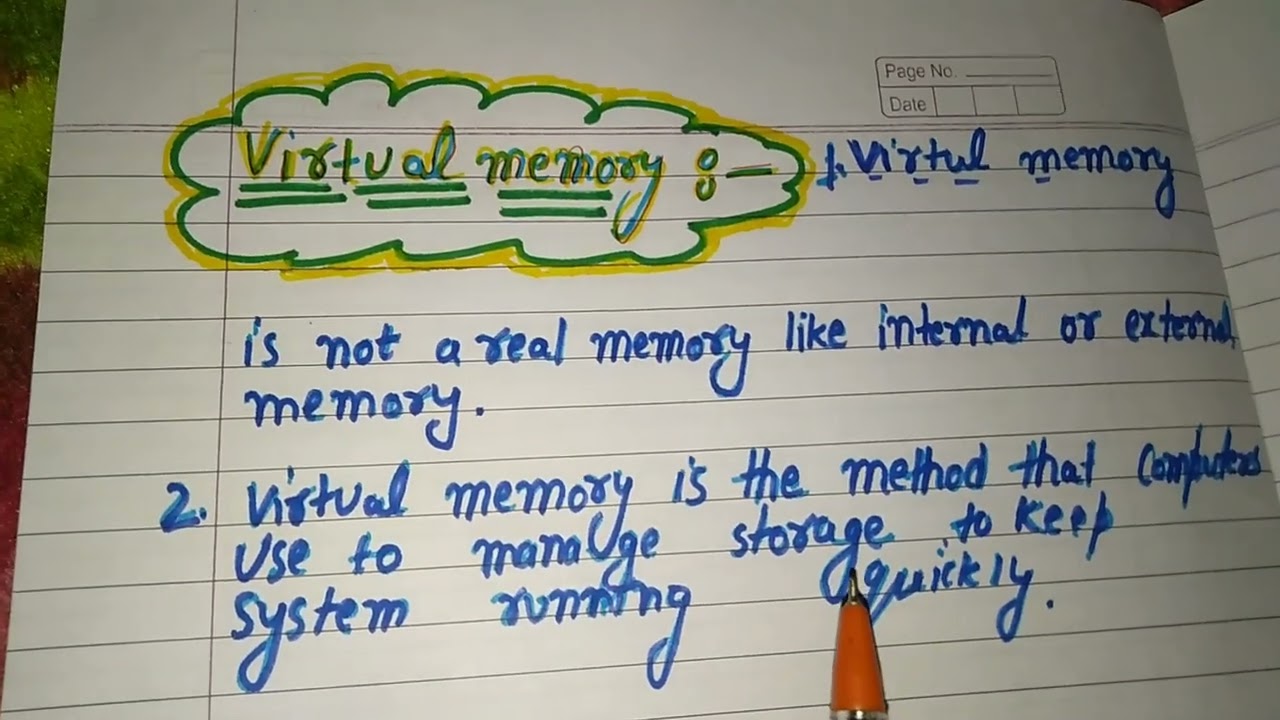 Page No.
Date
Virtual memory :- 1. Virtul memory
is not a real memory like internal or external
memory.
2. Virtual memory is the method that computers
use to manage storage to keep
system running quickly.